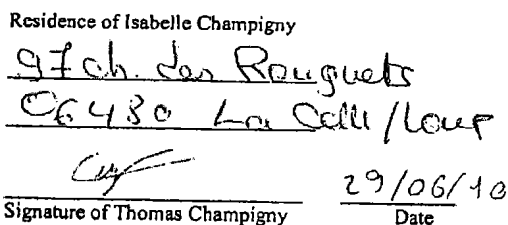 Residence of Isabelle Champigny
97 ch. des Rouguets
06480 La Colle/Loup
Signature of Thomas Champigny
29/06/10
Date